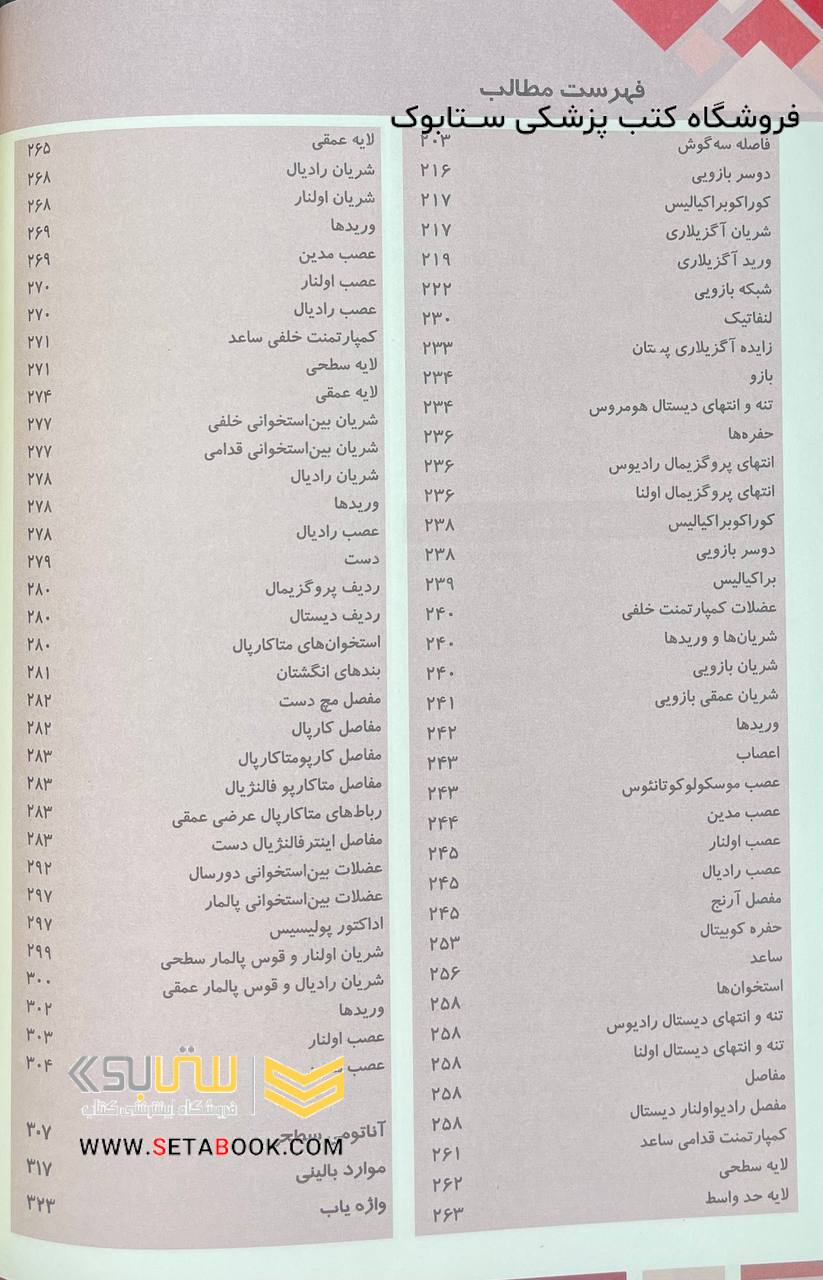 فهرست مطالب
فروشگاه کتب پزشکی ستابوک
فاصله سه‌گوش ۲۰۳
دوسر بازویی ۲۱۶
کوراکوبراکیالیس ۲۱۷
شریان آگزیلاری ۲۱۷
ورید آگزیلاری ۲۱۹
شبکه بازویی ۲۲۲
لنفاتیک ۲۳۰
زایده آگزیلاری پستان ۲۳۳
بازو ۲۳۴
تنه و انتهای دیستال هومروس ۲۳۴
حفره‌ها ۲۳۶
انتهای پروگزیمال رادیوس ۲۳۶
انتهای پروگزیمال اولنا ۲۳۶
کوراکوبراکیالیس ۲۳۸
دوسر بازویی ۲۳۸
براکیالیس ۲۳۹
عضلات کمپارتمنت خلفی ۲۴۰
شریان‌ها و وریدها ۲۴۰
شریان بازویی ۲۴۰
شریان عمقی بازویی ۲۴۱
وریدها ۲۴۲
اعصاب ۲۴۳
عصب موسکولوکوتانئوس ۲۴۳
عصب مدین ۲۴۴
عصب اولنار ۲۴۵
عصب رادیال ۲۴۵
مفصل آرنج ۲۴۵
حفره کوبیتال ۲۵۳
ساعد ۲۵۶
استخوان‌ها ۲۵۸
تنه و انتهای دیستال رادیوس ۲۵۸
تنه و انتهای دیستال اولنا ۲۵۸
مفاصل ۲۵۸
مفصل رادیواولنار دیستال ۲۵۸
کمپارتمنت قدامی ساعد ۲۶۱
لایه سطحی ۲۶۲
لایه حد واسط ۲۶۳
لایه عمقی ۲۶۵
شریان رادیال ۲۶۸
شریان اولنار ۲۶۸
وریدها ۲۶۹
عصب مدین ۲۶۹
عصب اولنار ۲۷۰
عصب رادیال ۲۷۰
کمپارتمنت خلفی ساعد ۲۷۱
لایه سطحی ۲۷۱
لایه عمقی ۲۷۴
شریان بین‌استخوانی خلفی ۲۷۷
شریان بین‌استخوانی قدامی ۲۷۷
شریان رادیال ۲۷۸
وریدها ۲۷۸
عصب رادیال ۲۷۸
دست ۲۷۹
ردیف پروگزیمال ۲۸۰
ردیف دیستال ۲۸۰
استخوان‌های متاکارپال ۲۸۰
بندهای انگشتان ۲۸۱
مفصل مچ دست ۲۸۲
مفاصل کارپال ۲۸۲
مفاصل کارپومتاکارپال ۲۸۳
مفاصل متاکارپو فالنژیال ۲۸۳
رباط‌های متاکارپال عرضی عمقی ۲۸۳
مفاصل اینترفالنژیال دست ۲۸۳
عضلات بین‌استخوانی دورسال ۲۹۲
عضلات بین‌استخوانی پالمار ۲۹۷
اداکتور پولیسیس ۲۹۷
شریان اولنار و قوس پالمار سطحی ۲۹۹
شریان رادیال و قوس پالمار عمقی ۳۰۰
وریدها ۳۰۲
عصب اولنار ۳۰۳
عصب ۳۰۴
ستابوک
فروشگاه اینترنتی کتاب
آناتومی سطحی ۳۰۷
WWW.SETABOOK.COM
موارد بالینی ۳۱۷
واژه یاب ۳۲۳